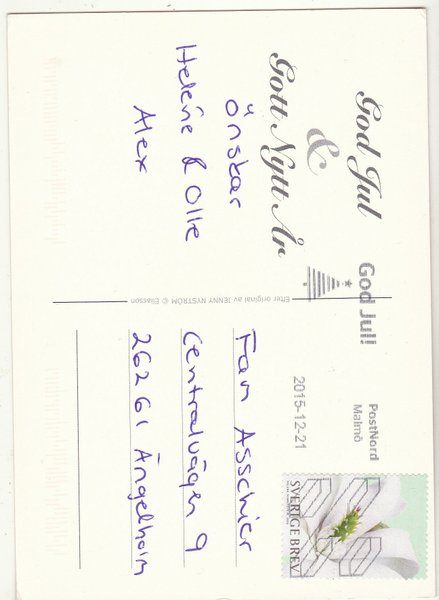 God Jul
&
Gott Nytt År
Önskar
Heléne & Olle
Alex
Efter original av JENNY NYSTRÖM © Eliasson
God Jul!
PostNord
Malmö
2015-12-21
SVERIGE BREV
Fam Asschier
Centralvägen 9
26261 Ängelholm